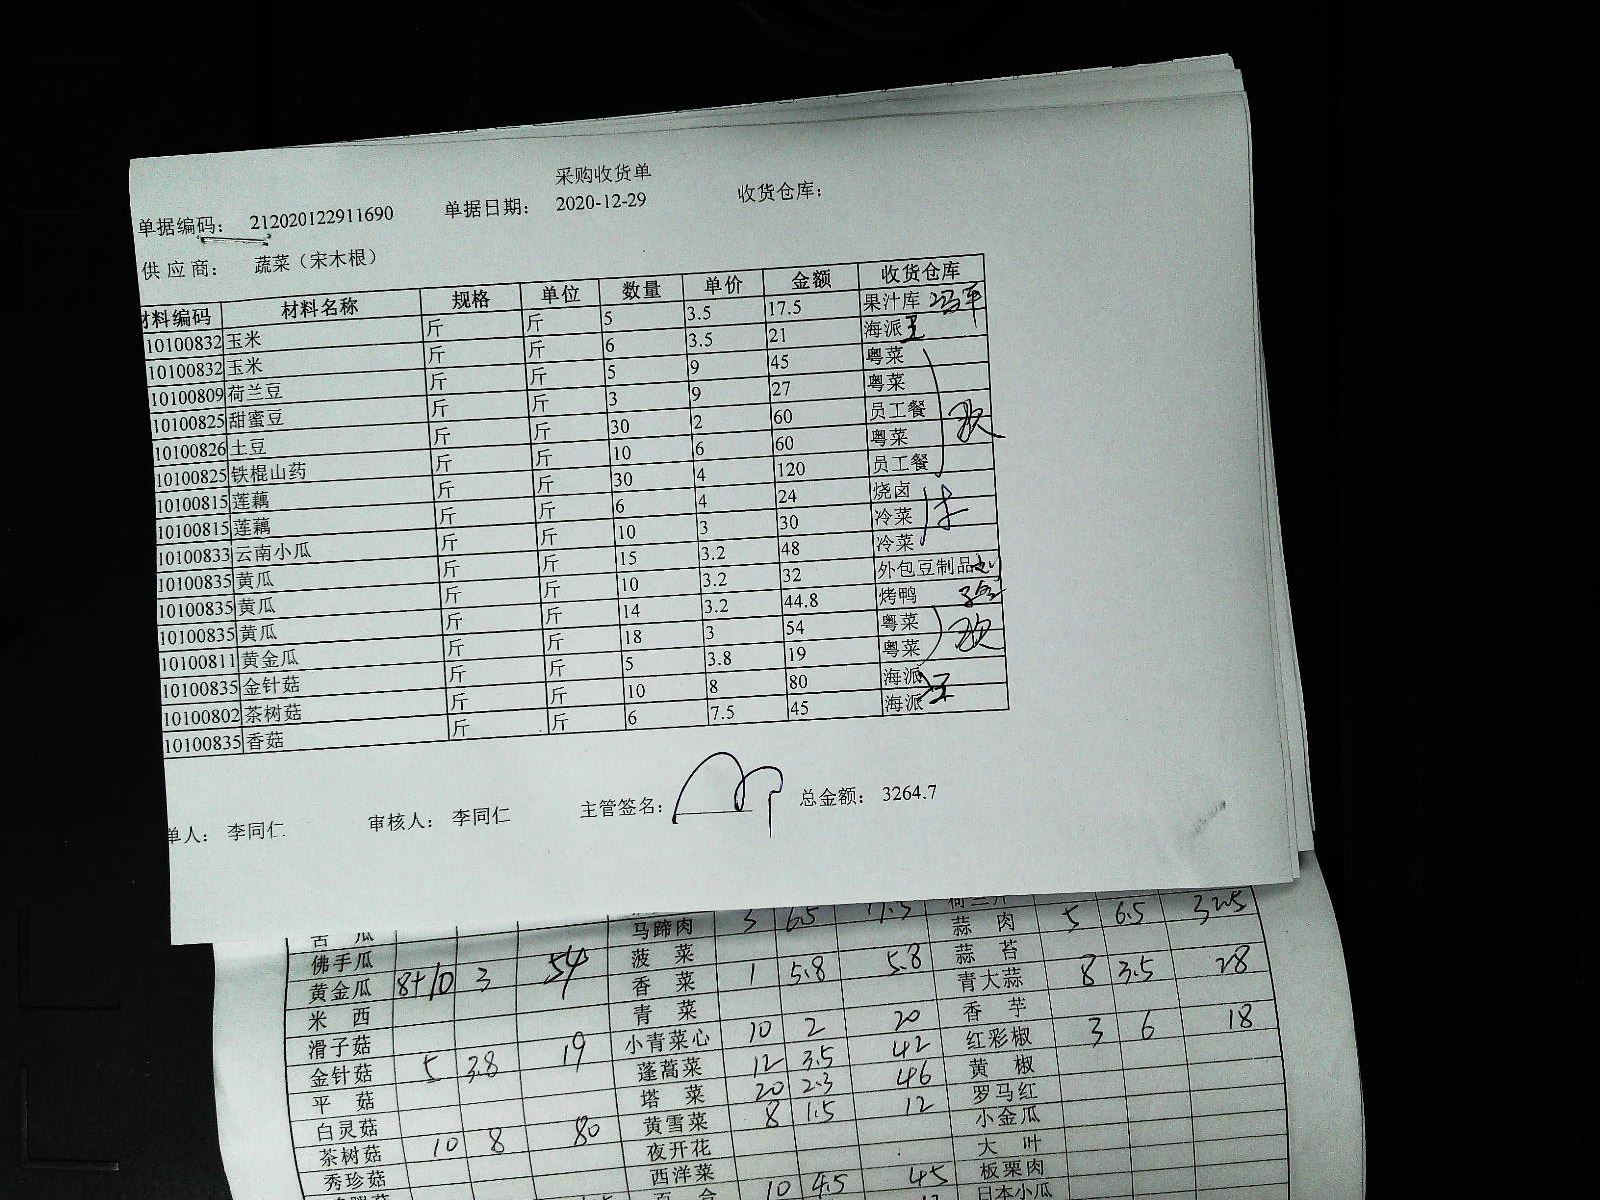 采购收货单
单据编码： 212020122911690 单据日期： 2020-12-29 收货仓库：
供应商： 蔬菜（宋木根）
材料编码 材料名称 规格 单位 数量 单价 金额 收货仓库
10100832 玉米 斤 斤 5 3.5 17.5 果汁库 冯平
10100832 玉米 斤 斤 6 3.5 21 海派
10100809 荷兰豆 斤 斤 5 9 45 粤菜
10100825 甜蜜豆 斤 斤 3 9 27 粤菜
10100826 土豆 斤 斤 30 2 60 员工餐
10100825 铁棍山药 斤 斤 10 6 60 粤菜
10100815 莲藕 斤 斤 30 4 120 员工餐
10100815 莲藕 斤 斤 6 4 24 烧卤
10100833 云南小瓜 斤 斤 10 3 30 冷菜
10100835 黄瓜 斤 斤 15 3.2 48 冷菜
10100835 黄瓜 斤 斤 10 3.2 32 外包豆制品
10100835 黄瓜 斤 斤 14 3.2 44.8 烤鸭
10100811 黄金瓜 斤 斤 18 3 54 粤菜
10100835 金针菇 斤 斤 5 3.8 19 粤菜
10100802 茶树菇 斤 斤 10 8 80 海派
10100835 香菇 斤 斤 6 7.5 45 海派
单人： 李同仁 审核人： 李同仁 主管签名： 总金额： 3264.7
苦瓜 马蹄肉 3 6.5 蒜肉 5 6.5 32.5
佛手瓜 菠菜 蒜苔
黄金瓜 8+10 3 54 香菜 1 5.8 5.8 青大蒜 8 3.5 28
米西 青菜 香芋
滑子菇 小青菜心 10 2 20 红彩椒 3 6 18
金针菇 5 3.8 19 蓬蒿菜 12 3.5 42 黄椒
平菇 塔菜 20 2.3 46 罗马红
白灵菇 黄雪菜 8 1.5 12 小金瓜
茶树菇 10 8 80 夜开花 大叶
秀珍菇 西洋菜 板栗肉
百合 10 4.5 45 日本小瓜